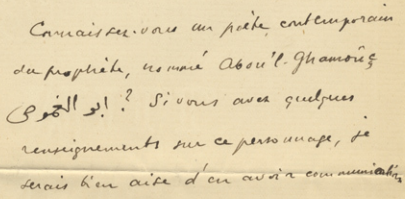 Connaissez-vous un poète contemporain
du prophète, nommé Aboû'l-Ghamoûç
ابو الغموص ? Si vous avez quelques
renseignements sur ce personnage, je
serais bien aise d'en avoir communication